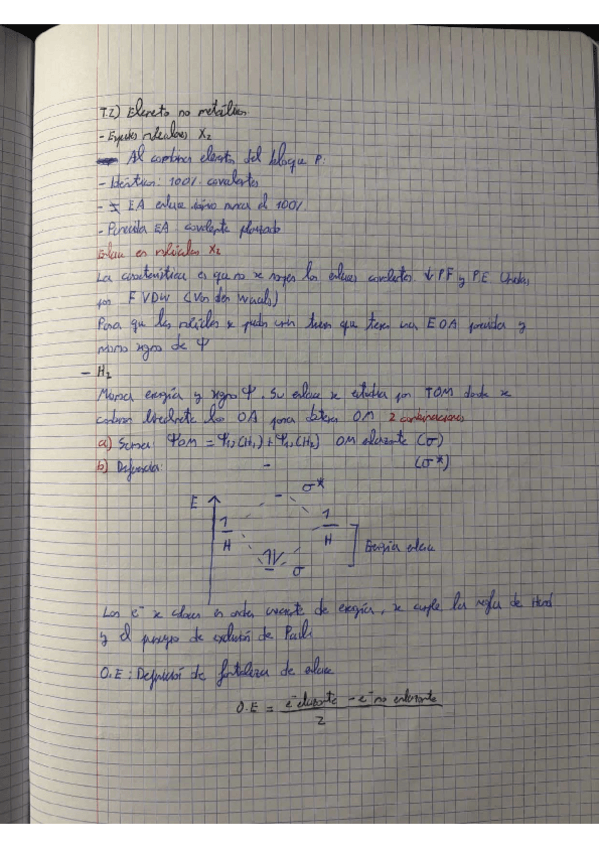 T.2) Elementos no metálicos
- Especies moleculares X₂
Al combinar elementos del bloque P:
- Idénticos: 100% covalentes
- ≠ EA enlace iónico nunca el 100%
- Parecida EA covalente polarizado
Enlace en moléculas X₂
La característica es que no se rompen los enlaces covalentes. ↓ PF y P.E. Unidas
por F VDW (Van der Waals)
Para que las moléculas se puedan unir tienen que tener una E OA parecida y
mismo signo de Ψ
- H₂
Misma energía y signo Ψ. Su enlace se estudia por TOM donde se
combinan linealmente los OA para obtener OM 2 combinaciones
a) Suma: ΨOM = Ψ₁,₂(H₁) + Ψ₁,₂(H₂) OM enlazante (σ)
b) Diferencia: - (σ*)
σ*
E
1 1
H H
1V σ
Energía enlace
Los e⁻ se colocan en orden creciente de energía, se cumple las reglas de Hund
y el principio de exclusión de Pauli
O.E: Definición de fortaleza de enlace
O.E = e⁻ enlazante - e⁻ no enlazante
2